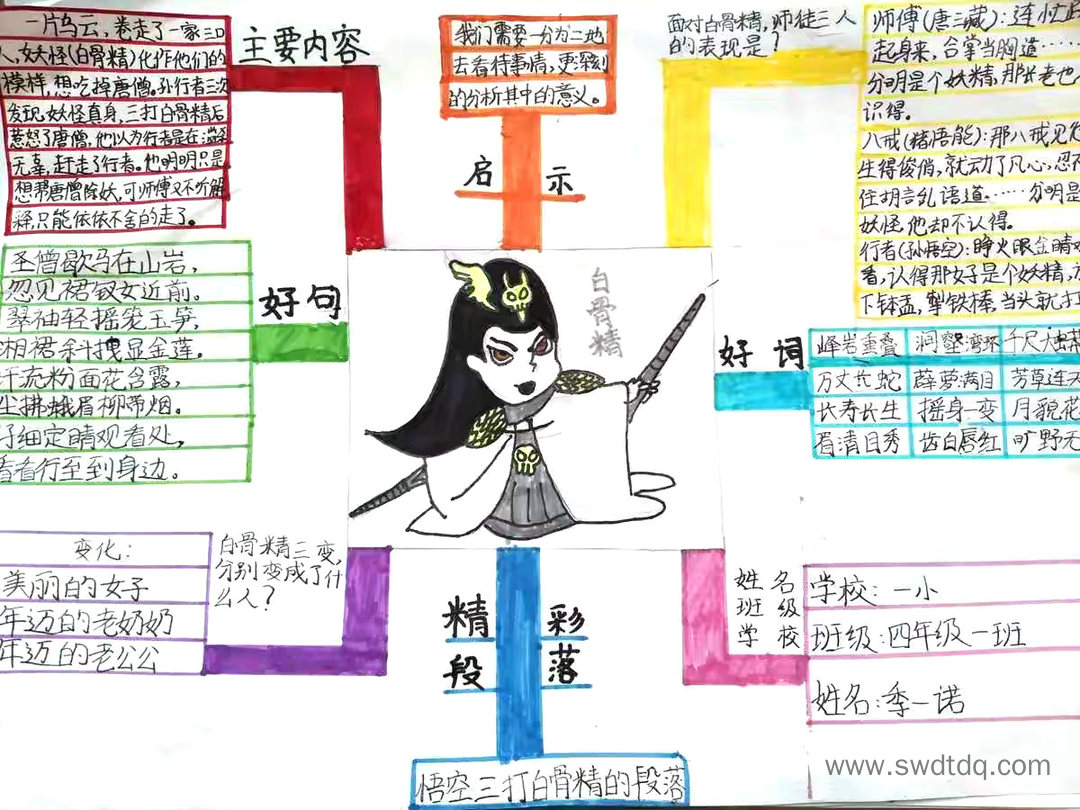 一片乌云，卷走了一家三口
人，妖怪(白骨精)化作他们的
模样，想吃掉唐僧。孙行者三次
发现妖怪真身，三打白骨精后
惹怒了唐僧，他以为行者是在滥杀
无辜，赶走了行者。他明明只是
想帮唐僧除妖，可师傅又不听解
释，只能依依不舍的走了。
主要内容
我们需要一分为二地
去看待事情，更深刻
的分析其中的意义。
启示
面对白骨精，师徒三人
的表现是？
师傅(唐三藏)：连忙
起身来，合掌当胸道……
分明是个妖精，那长老也
识得。
八戒(猪悟能)：那八戒见他
生得俊俏，就动了凡心，忍不
住胡言乱语道……分明是
妖怪，他却不认得。
行者(孙悟空)：睁火眼金睛观
看，认得那女子是个妖精，
下钵盂，掣铁棒，当头就打
圣僧歇马在山岩，
忽见裙钗女近前。
翠袖轻摇笼玉笋，
湘裙斜拽显金莲。
汗流粉面花含露，
尘拂蛾眉柳带烟。
仔细定睛观看处，
看看行至到身边。
好句
白骨精
好词
峰岩重叠 涧壑湾环 千尺大蟒
万丈长蛇 薜萝满目 芳草连天
长寿长生 摇身一变 月貌花
眉清目秀 齿白唇红 旷野无
变化：
美丽的女子
年迈的老奶奶
年迈的老公公
白骨精三变，
分别变成了什
么人？
精彩
段落
悟空三打白骨精的段落
姓名
班级
学校
学校：一小
班级：四年级一班
姓名：季一诺
www.swdtdq.com